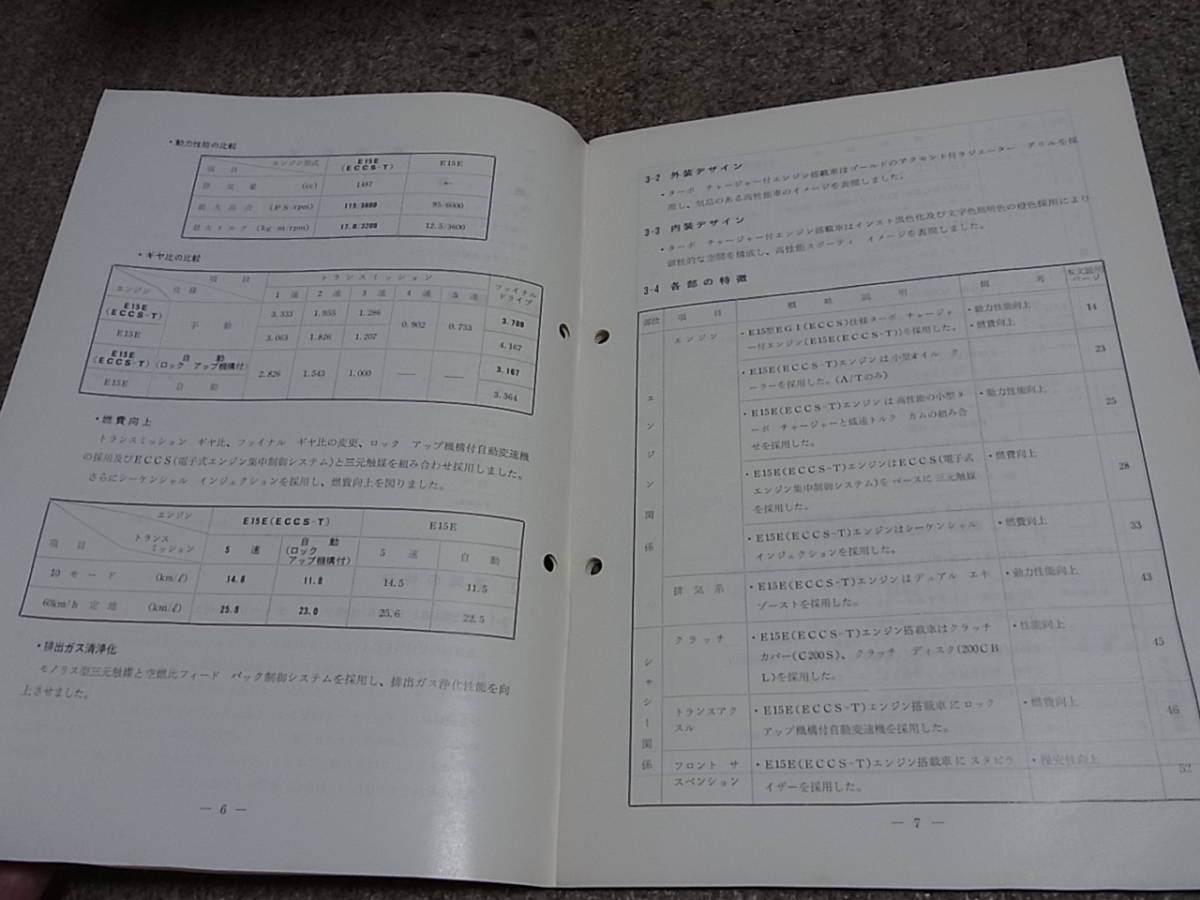 ・動力性能の比較
エンジン型式 E15E (ECCS-T) E15E
項目
排気量 (cc) 1487 ←
最大馬力 (PS/rpm) 115/5600 95/6000
最大トルク (kg-m/rpm) 17.0/3200 12.5/3600
・ギヤ比の比較
項目 トランスミッション ファイナルドライブ
エンジン 仕様 1速 2速 3速 4速 5速
E15E (ECCS-T) 手動 3.333 1.955 1.286 0.902 0.733 3.789
E15E 3.063 1.826 1.207 4.167
E15E (ECCS-T) 自動 (ロックアップ機構付) 2.826 1.543 1.000 — — 3.167
E15E 自動 3.364
・燃費向上
トランスミッション ギヤ比、ファイナル ギヤ比の変更、ロック アップ機構付自動変速機
の採用及びECCS(電子式エンジン集中制御システム)と三元触媒を組み合わせ採用しました。
さらにシーケンシャル インジェクションを採用し、燃費向上を図りました。
エンジン E15E(ECCS-T) E15E
項目 トランスミッション 5速 自動 (ロックアップ機構付) 5速 自動
10モード (km/ℓ) 14.8 11.8 14.5 11.5
60km/h 定地 (km/ℓ) 25.8 23.0 25.6 22.5
・排出ガス清浄化
モノリス型三元触媒と空燃比フィード バック制御システムを採用し、排出ガス浄化性能を向
上させました。
— 6 —
3-2 外装デザイン
・ターボ チャージャー付エンジン搭載車はゴールドのアクセント付ラジエーター グリルを採
用し、気品のある高性能車のイメージを表現しました。
3-3 内装デザイン
・ターボ チャージャー付エンジン搭載車はインスト黒色化及び文字色照明色の橙色採用により
個性的な空間を構成し、高性能スポーティ イメージを表現しました。
3-4 各部の特徴
部位 項目 概略説明 備考 本文説明ページ
エンジン関係
エンジン ・E15型EGI(ECCS)仕様ターボ チャージャ ・動力性能向上 14
ー付エンジン[E15E(ECCS-T)]を採用した。 ・燃費向上
・E15E(ECCS-T)エンジンは小型オイル ク 23
ーラーを採用した。(A/Tのみ)
・E15E(ECCS-T)エンジンは高性能の小型タ ・動力性能向上 25
ーボ チャージャーと低速トルク カムの組み合
せを採用した。
・E15E(ECCS-T)エンジンはECCS(電子式 ・燃費向上 28
エンジン集中制御システム)をベースに三元触媒
を採用した。
・E15E(ECCS-T)エンジンはシーケンシャル ・燃費向上 33
インジェクションを採用した。
排気系 ・E15E(ECCS-T)エンジンはデュアル エキ ・動力性能向上 43
ゾーストを採用した。
シャシー関係
クラッチ ・E15E(ECCS-T)エンジン搭載車はクラッチ ・性能向上 45
カバー(C200S)、クラッチ ディスク(200CB
L)を採用した。
トランスアク ・E15E(ECCS-T)エンジン搭載車にロック ・燃費向上 46
スル アップ機構付自動変速機を採用した。
フロントサ ・E15E(ECCS-T)エンジン搭載車にスタビラ ・操安性向上 52
スペンション イザーを採用した。
— 7 —